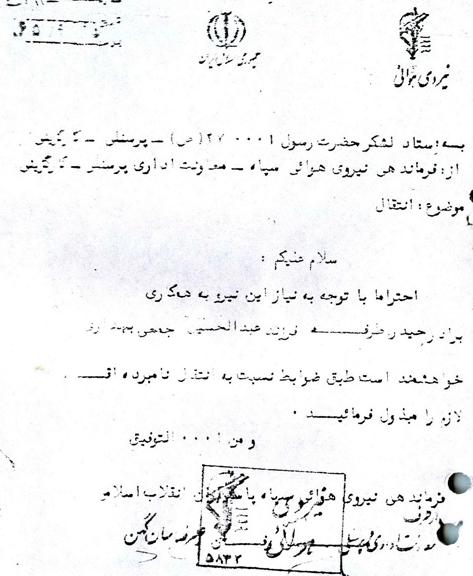 جمهوری اسلامی ایران
نیروی هوائی
بسه: ستاد لشگر حضرت رسول ا ۰۰۰ ۲۷ (ص) – پرسنلی – کارگزینی
از: فرماندهی نیروی هوائی سپاه – معاونت اداری پرسنلی – کارگزینی
موضوع: انتقال
سلام علیکم :
احتراما با توجه به نیاز این نیرو به همکاری
برادر حیدر فرزند عبدالحسین جمعی
خواهشمند است طبق ضوابط نسبت به انتقال نامبرده
لازم را مبذول فرمائید ۰
و من ا ۰۰۰ التوفیق
فرماندهی نیروی هوائی سپاه پاسداران انقلاب اسلامی
نیروی
هوائی
۵۸۳۲